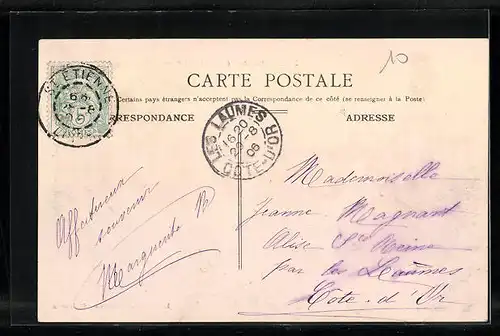 10
CARTE POSTALE
Certains pays étrangers n'acceptent pas la Correspondance de ce côté (se renseigner à la Poste)
RRESPONDANCE
ADRESSE
ST ETIENNE
LES LAUMES
16-20
23-8
06
COTE-D'OR
Affectueux
souvenir
Marguerite
Mademoiselle
Jeanne Magnant
Alise Ste Reine
par les Laumes
Cote-d'Or